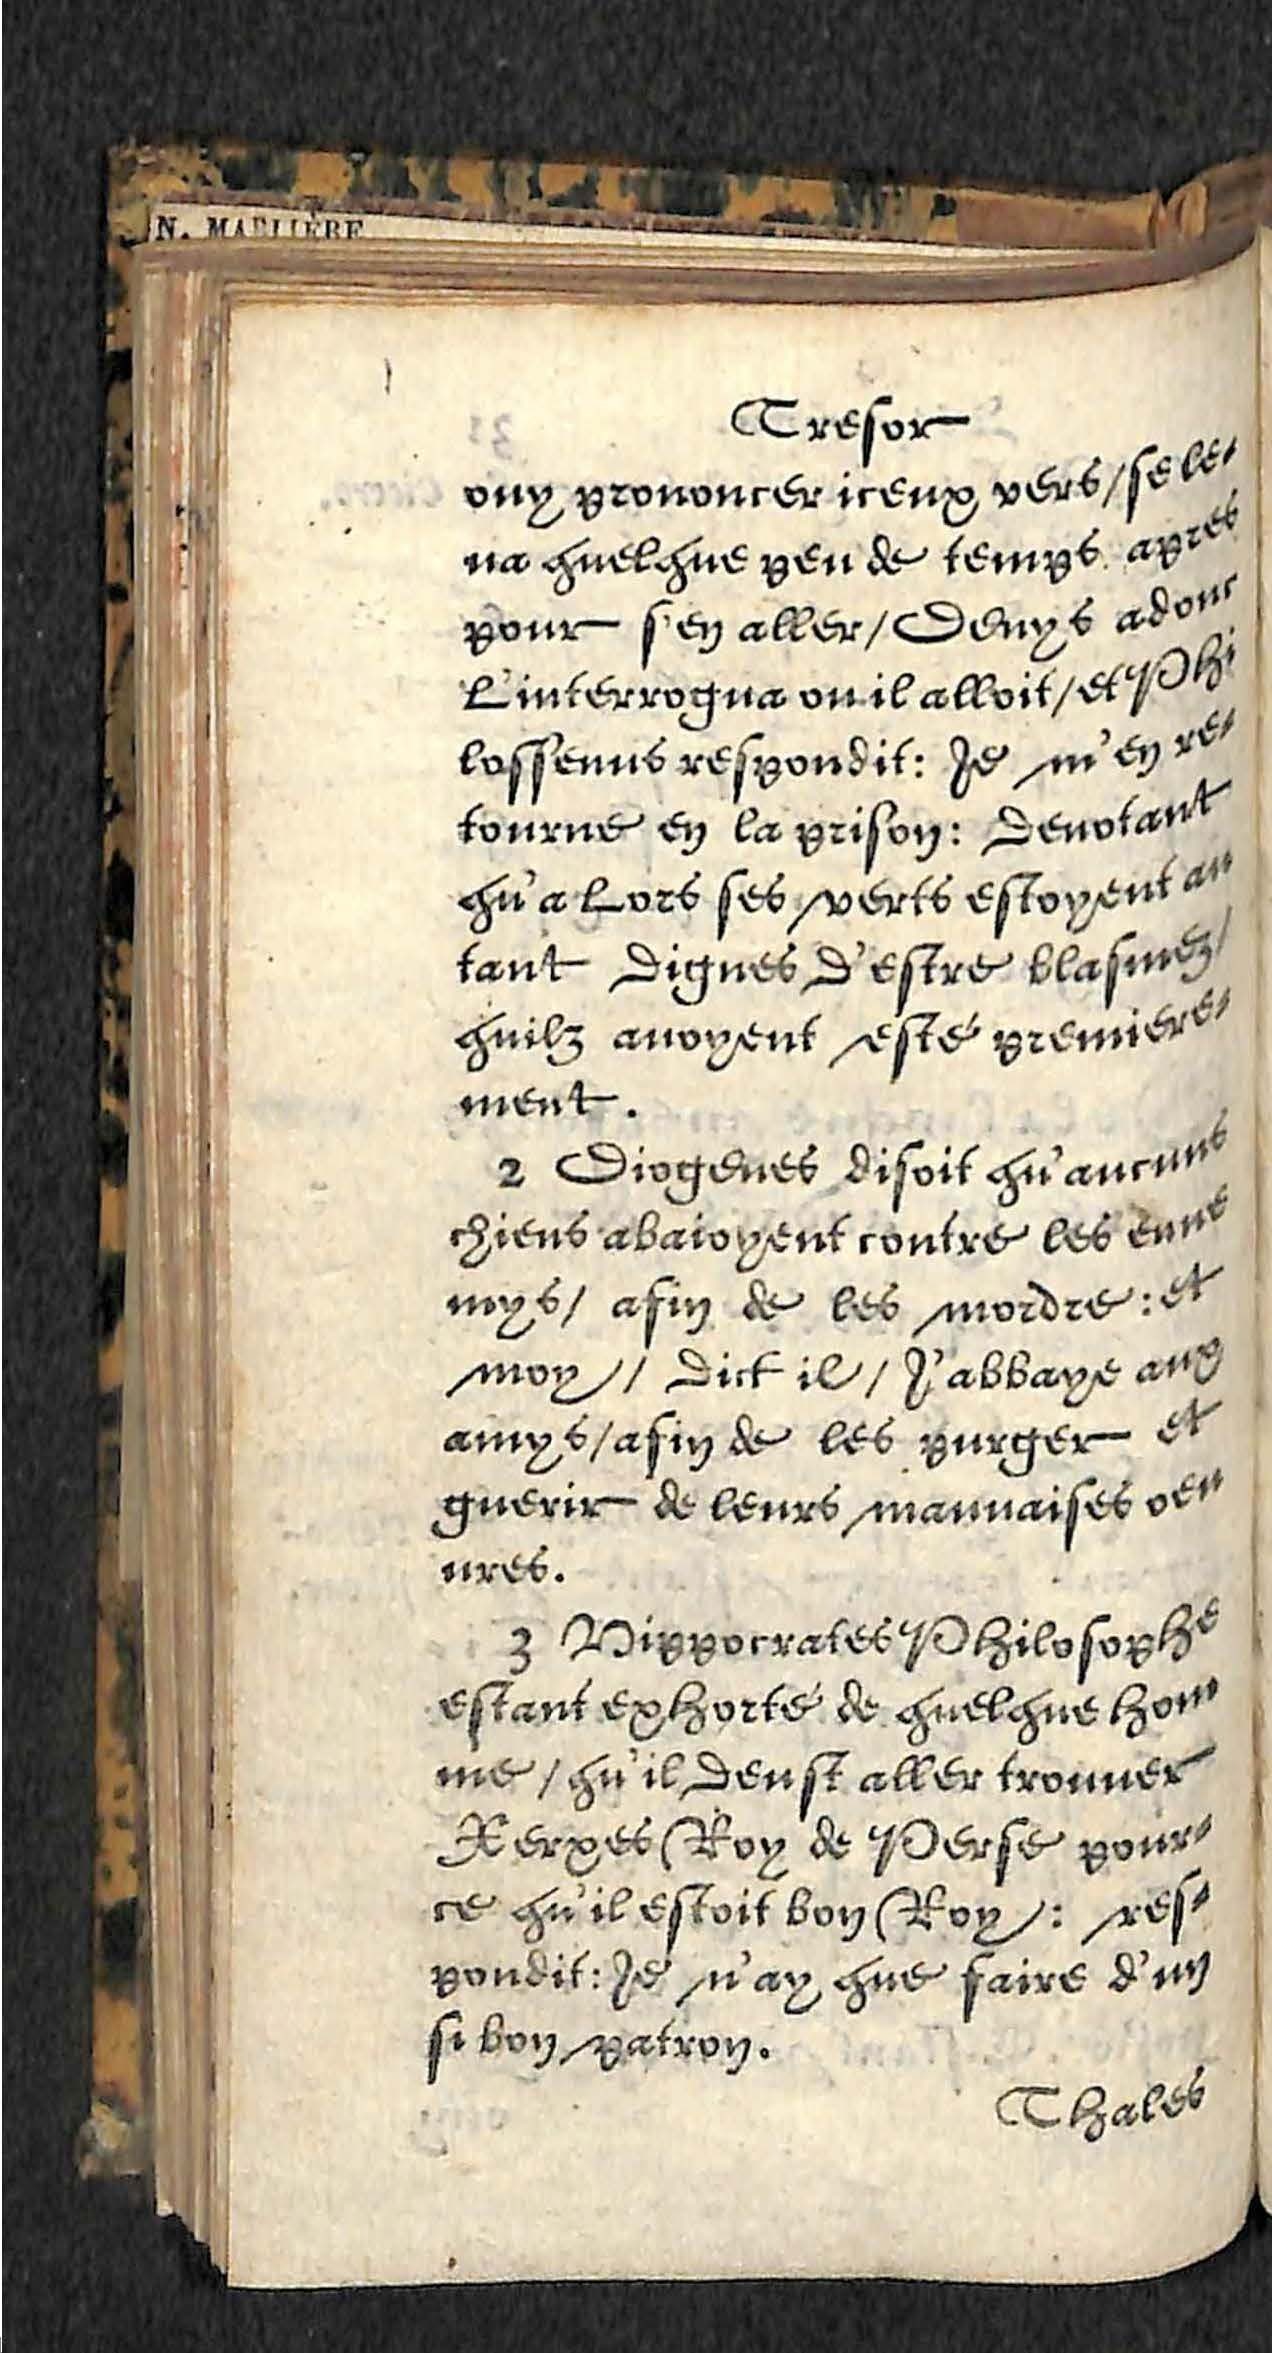 N. MARLIÈRE
Tresor
ouy prononcer iceux vers/se le-
ua quelque peu de temps apres
pour s'en aller/Denys adonc
L'interrogua ou il alloit/et Phi
lossenus respondit: Je m'en re-
tourne en la prison: Denotant
qu'a Lors ses verts estoyent au
tant Dignes D'estre blasmez/
quilz auoyent esté premiere-
ment.
2 Diogenes disoit qu'aucuns
chiens abaioyent contre les enne
mys/ afin de les mordre: et
moy/ Dict il/ J'abbaye aux
amys/afin de les purger et
guerir de leurs mauuaises oeu
ures.
3 Hippocrates Philosophe
estant exhorté de quelque hom
me/qu'il Deust aller trouuer
Xerxes Roy de Perse pour-
ce qu'il estoit bon Roy: res-
pondit: Je n'ay que faire d'un
si bon patron.
Thales